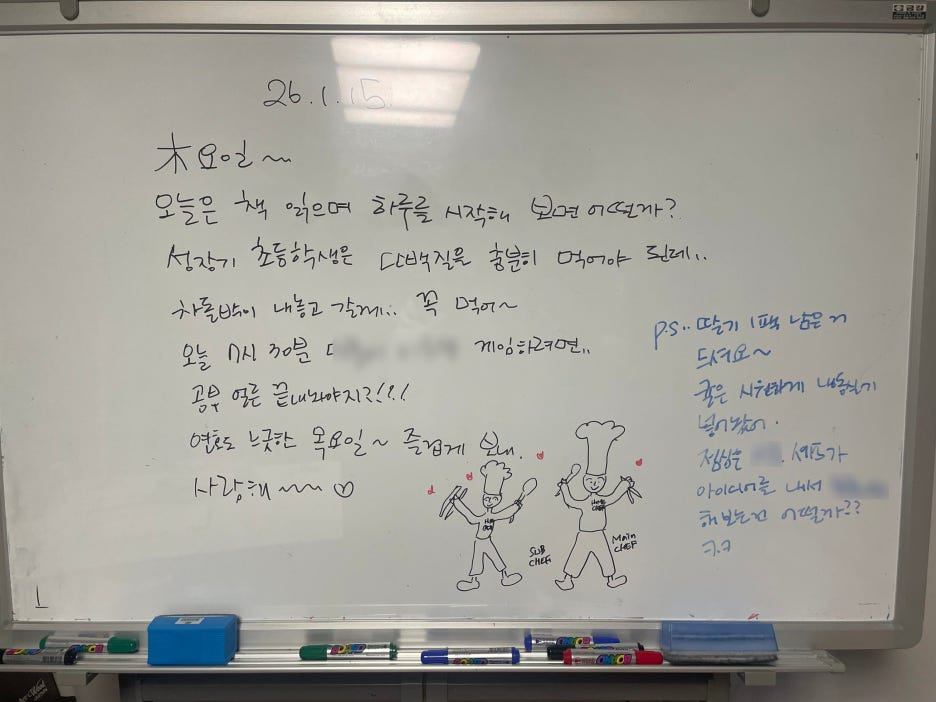 26.1.15
木요일~
오늘은 책 읽으며 하루를 시작해 보면 어떨까?
성장기 초등학생은 단백질을 충분히 먹어야 된데..
차돌박이 내놓고 갈게.. 꼭 먹어~
오늘 7시 30분 게임하려면..
공부 얼른 끝내놔야지?!?!
연휴도 느긋한 목요일~ 즐겁게 보내.
사랑해~~~♡
SUB
CHEF
Main
CHEF
p.s.. 딸기 1팩 남은거
드셔요~
귤은 시원하게 냉동실에
넣어놨어.
점심은 셰프가
아이디어를 내서
해보는건 어떨까??
ㅋ.ㅋ